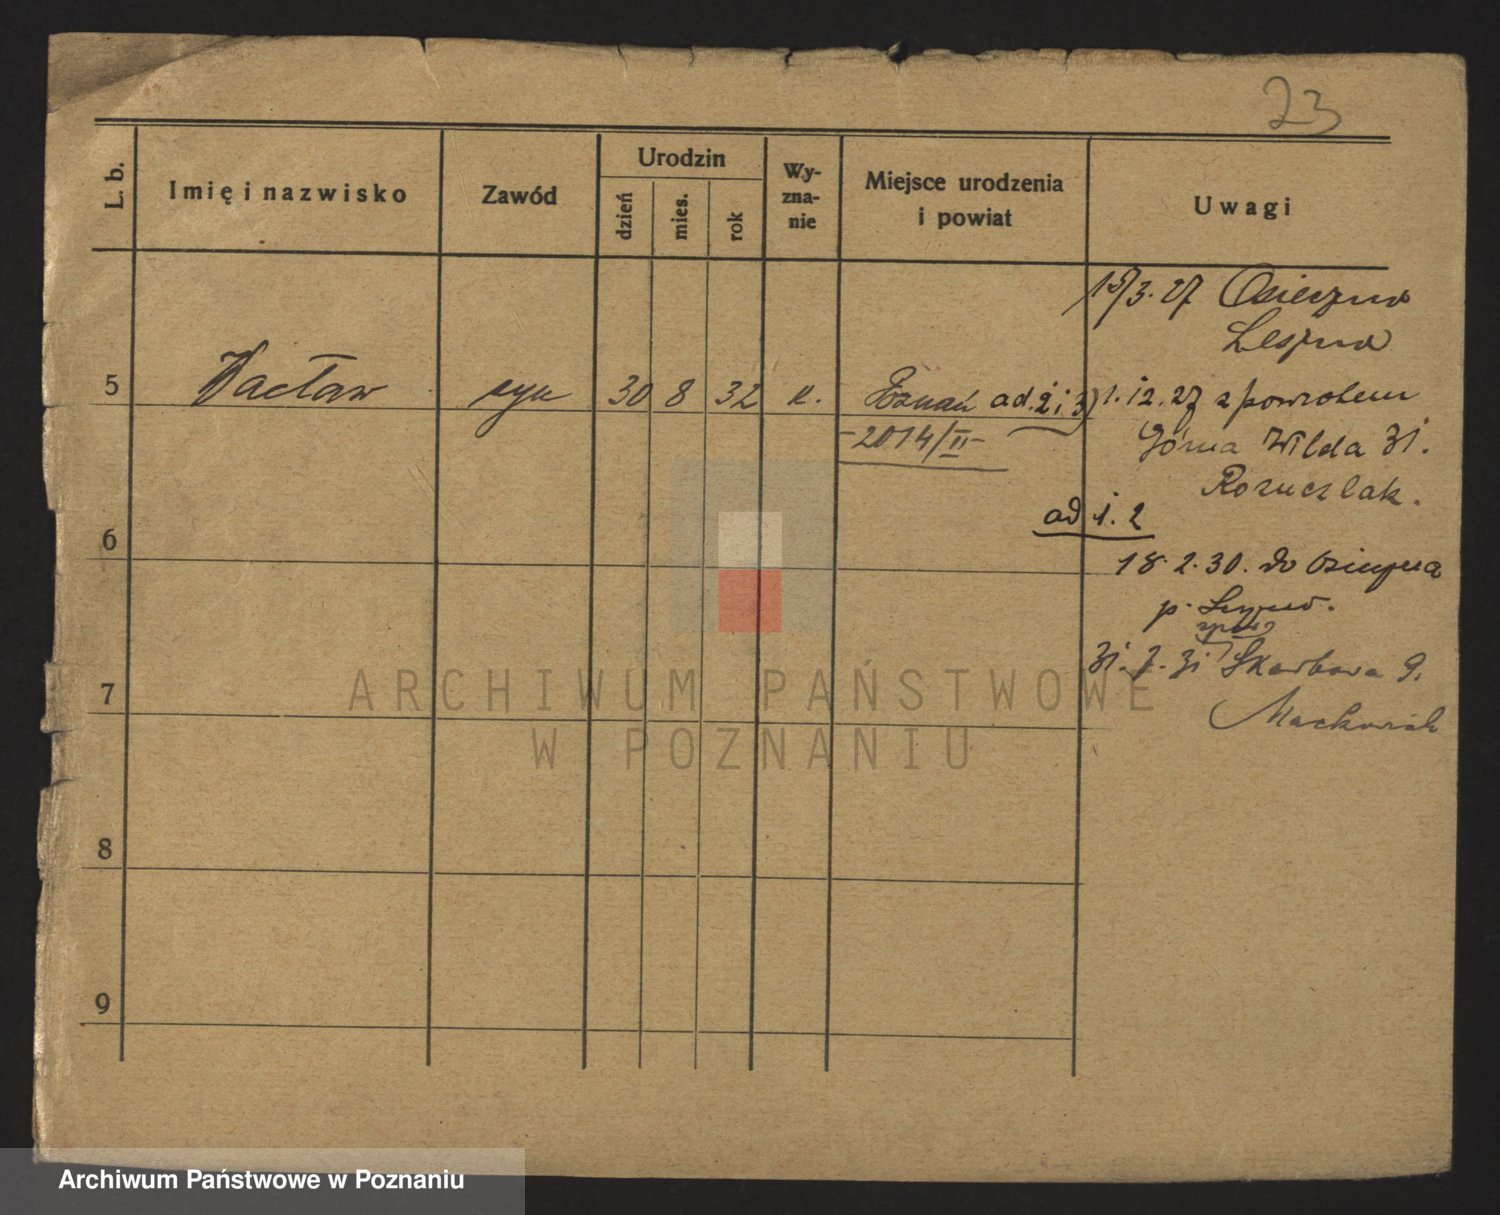 23
L. b.
Imię i nazwisko
Zawód
Urodzin
dzień
mies.
rok
Wy-
zna-
nie
Miejsce urodzenia
i powiat
Uwagi
15/3. 27 Osieczna
Leszno
5 Wacław syn 30 8 32 k. Poznań ad. 2 i 3) 1. 12. 27 z powrotem
-2014/II-
Górna Wilda 31.
ad 1. 2
6
18. 2. 30. do Osieczna
p. Leszno.
31. 7. 31 Skarbowa 9.
7
Maćkowiak
8
9
ARCHIWUM PAŃSTWOWE
W POZNANIU
Archiwum Państwowe w Poznaniu